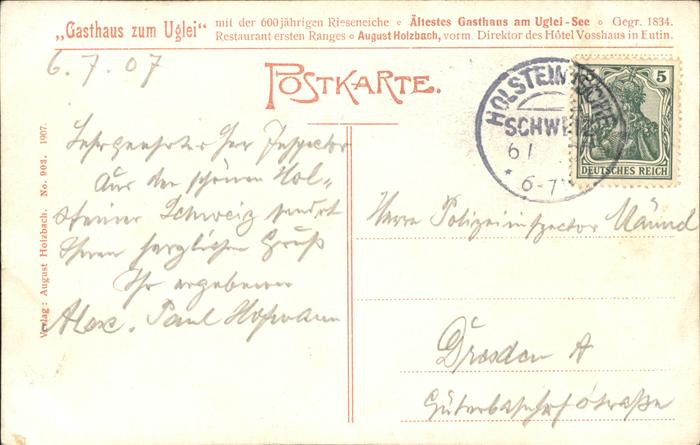 „Gasthaus zum Uglei“ mit der 600jährigen Rieseneiche ◦ Ältestes Gasthaus am Uglei-See ◦ Gegr. 1834.
Restaurant ersten Ranges ◦ August Holzbach, vorm. Direktor des Hôtel Vosshaus in Eutin.
6.7.07
POSTKARTE.
Sehrgeehrter Herr Inspector
Aus der schönen Hol=
steiner Schweiz sendet
Ihnen herzlichen Gruß
Ihr ergebener
Alex. Paul Hofmann
Verlag: August Holzbach. No. 903. 1907.
HOLSTEINISCHE
SCHWEIZ
6 7
* 6-7
5
DEUTSCHES REICH
Herrn Polizeiinspector
Dresden A
Güterbahnhofstraße